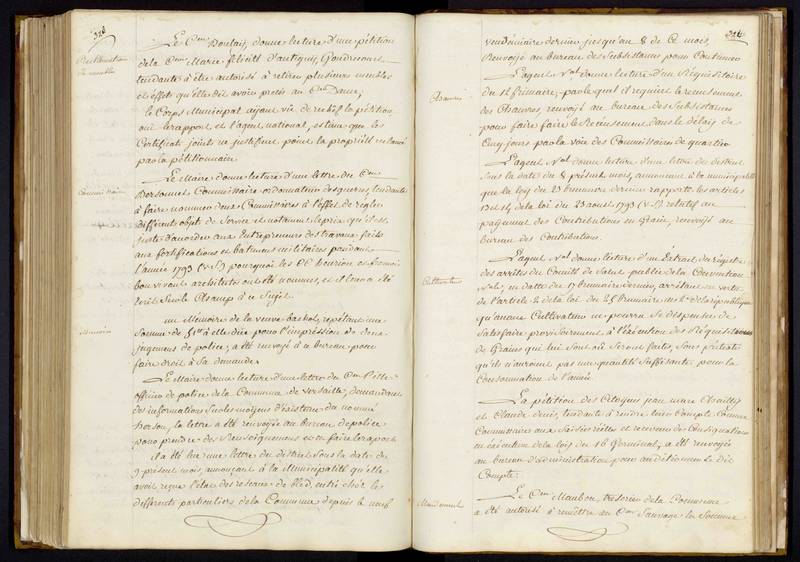 328
Le C.en Boulay, donne lecture d'une pétition
de la C.enne Marie félicité d'antigny,
tendante à être autorisé à retirer plusieurs meubles
et effets qu'elle dit avoir prêtés au C.en
le Corps Municipal ayant vû de rechef la pétition,
ouï le rapport et l'agent national, estime que les
Certificats joints ne justifient point la propriété
par la pétitionnaire
Commissaire
Le Maire donne lecture d'une lettre du C.en
Commissaire ordonnateur des guerres, tendante
à faire nommer deux Commissaires à l'effet de régler
différents objets de Service et notament le prix qu'il est
juste d'accorder aux Entrepreneurs des travaux faits
aux fortifications et batiments militaires pendant
l'année 1793 (v.s.) pourquoi les CC. heurion et
architectes ont été nommés, et il leur a été
Ecrit Sur le Champ à ce Sujet.
Mémoire
un Mémoire de la veuve répétant une
Somme de 51# à elle düe pour l'impression de deux
jugemens de police, a été renvoyé à ce bureau pour
faire droit à Sa demande.
Le Maire donne lecture d'une lettre du C.en
officier de police de la Commune de versaille, demandant
des informations Sur les moyens d'existence du nommé
herson, la lettre a été renvoyée au bureau de police
pour prendre des Renseignemens et en faire le rapport
il a été lue une lettre du district Sous la date du
9 présent mois annonçant à la Municipalité qu'elle
avoit reçue l'état des de bled, entré chéz les
différents particuliers de la Commune depuis le neuf
326
vendémiaire dernier jusqu'au 8 de Ce mois,
Renvoyé au bureau des Subsistances pour Continuer
Chanvres
L'agent N.al donne lecture d'un Réquisitoire
du 12 frimaire, par lequel il requiert le recensement
des Chanvres, renvoyé au bureau des Subsistances
pour faire faire le Recensement dans le délais de
Cinq jours par la voie des Commissaires de quartier
L'agent N.al donne lecture d'une lettre du district
Sous la date du 8 présent mois, annonçant à la municipalité
que la loy du 23 brumaire dernier rapporte les articles
13 et 14 de la loi du 23 aout 1793 (v.s.) relatif au
payement des Contributions en Grain, renvoyé au
bureau des Contributions.
Cultivateurs
L'agent N.al donne lecture d'un Extrait du régistre
des arrêtés du Comité de Salut public de la Convention
N.ale, en datte du 17 brumaire dernier, arrêtant en vertu
de l'article 2 de la loi du 25 brumaire
qu'aucun Cultivateur ne pourra Se dispenser de
Satisfaire provisoirement à l'exécution des Réquisitions
de Grains qui lui Sont ou Seront faites, Sous prétexte
qu'ils n'auroient pas une quantité Suffisante pour la
Consommation de l'année.
La pétition des Citoyens jean marc Chailly
et Claude denis, tendante à rendre leur Compte Comme
Commissaires aux Saisies réelles et receveur des Consignations
en exécution de la loy du 16 Germinal, a été renvoyée
au bureau d'administration pour audition le dit
Compte.
Mandement
Le C.en Maubon, trésorier de la Commune
a été autorisé à remettre au C.en Sauvage la Somme